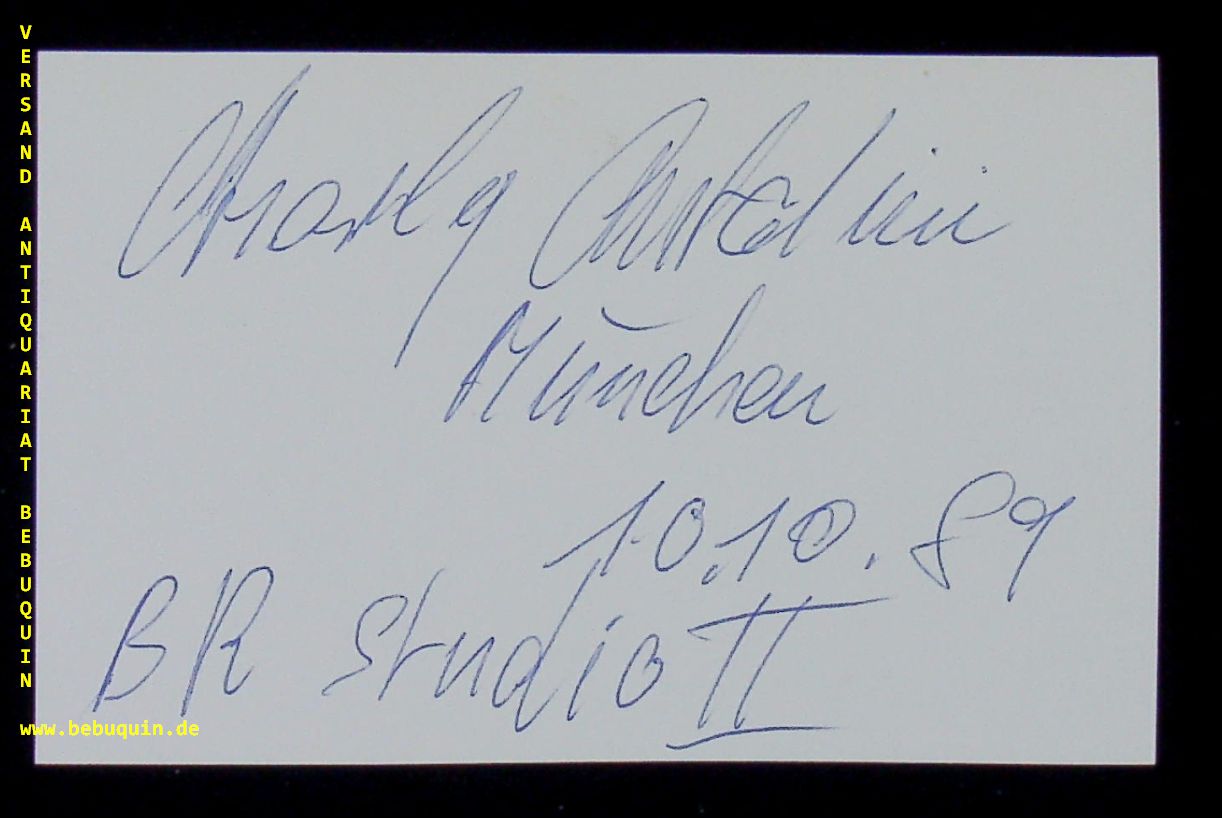 VERSAND ANTIQUARIAT BEBUQUIN
Charly Antolini
München
10.10.89
BR Studio II
www.bebuquin.de